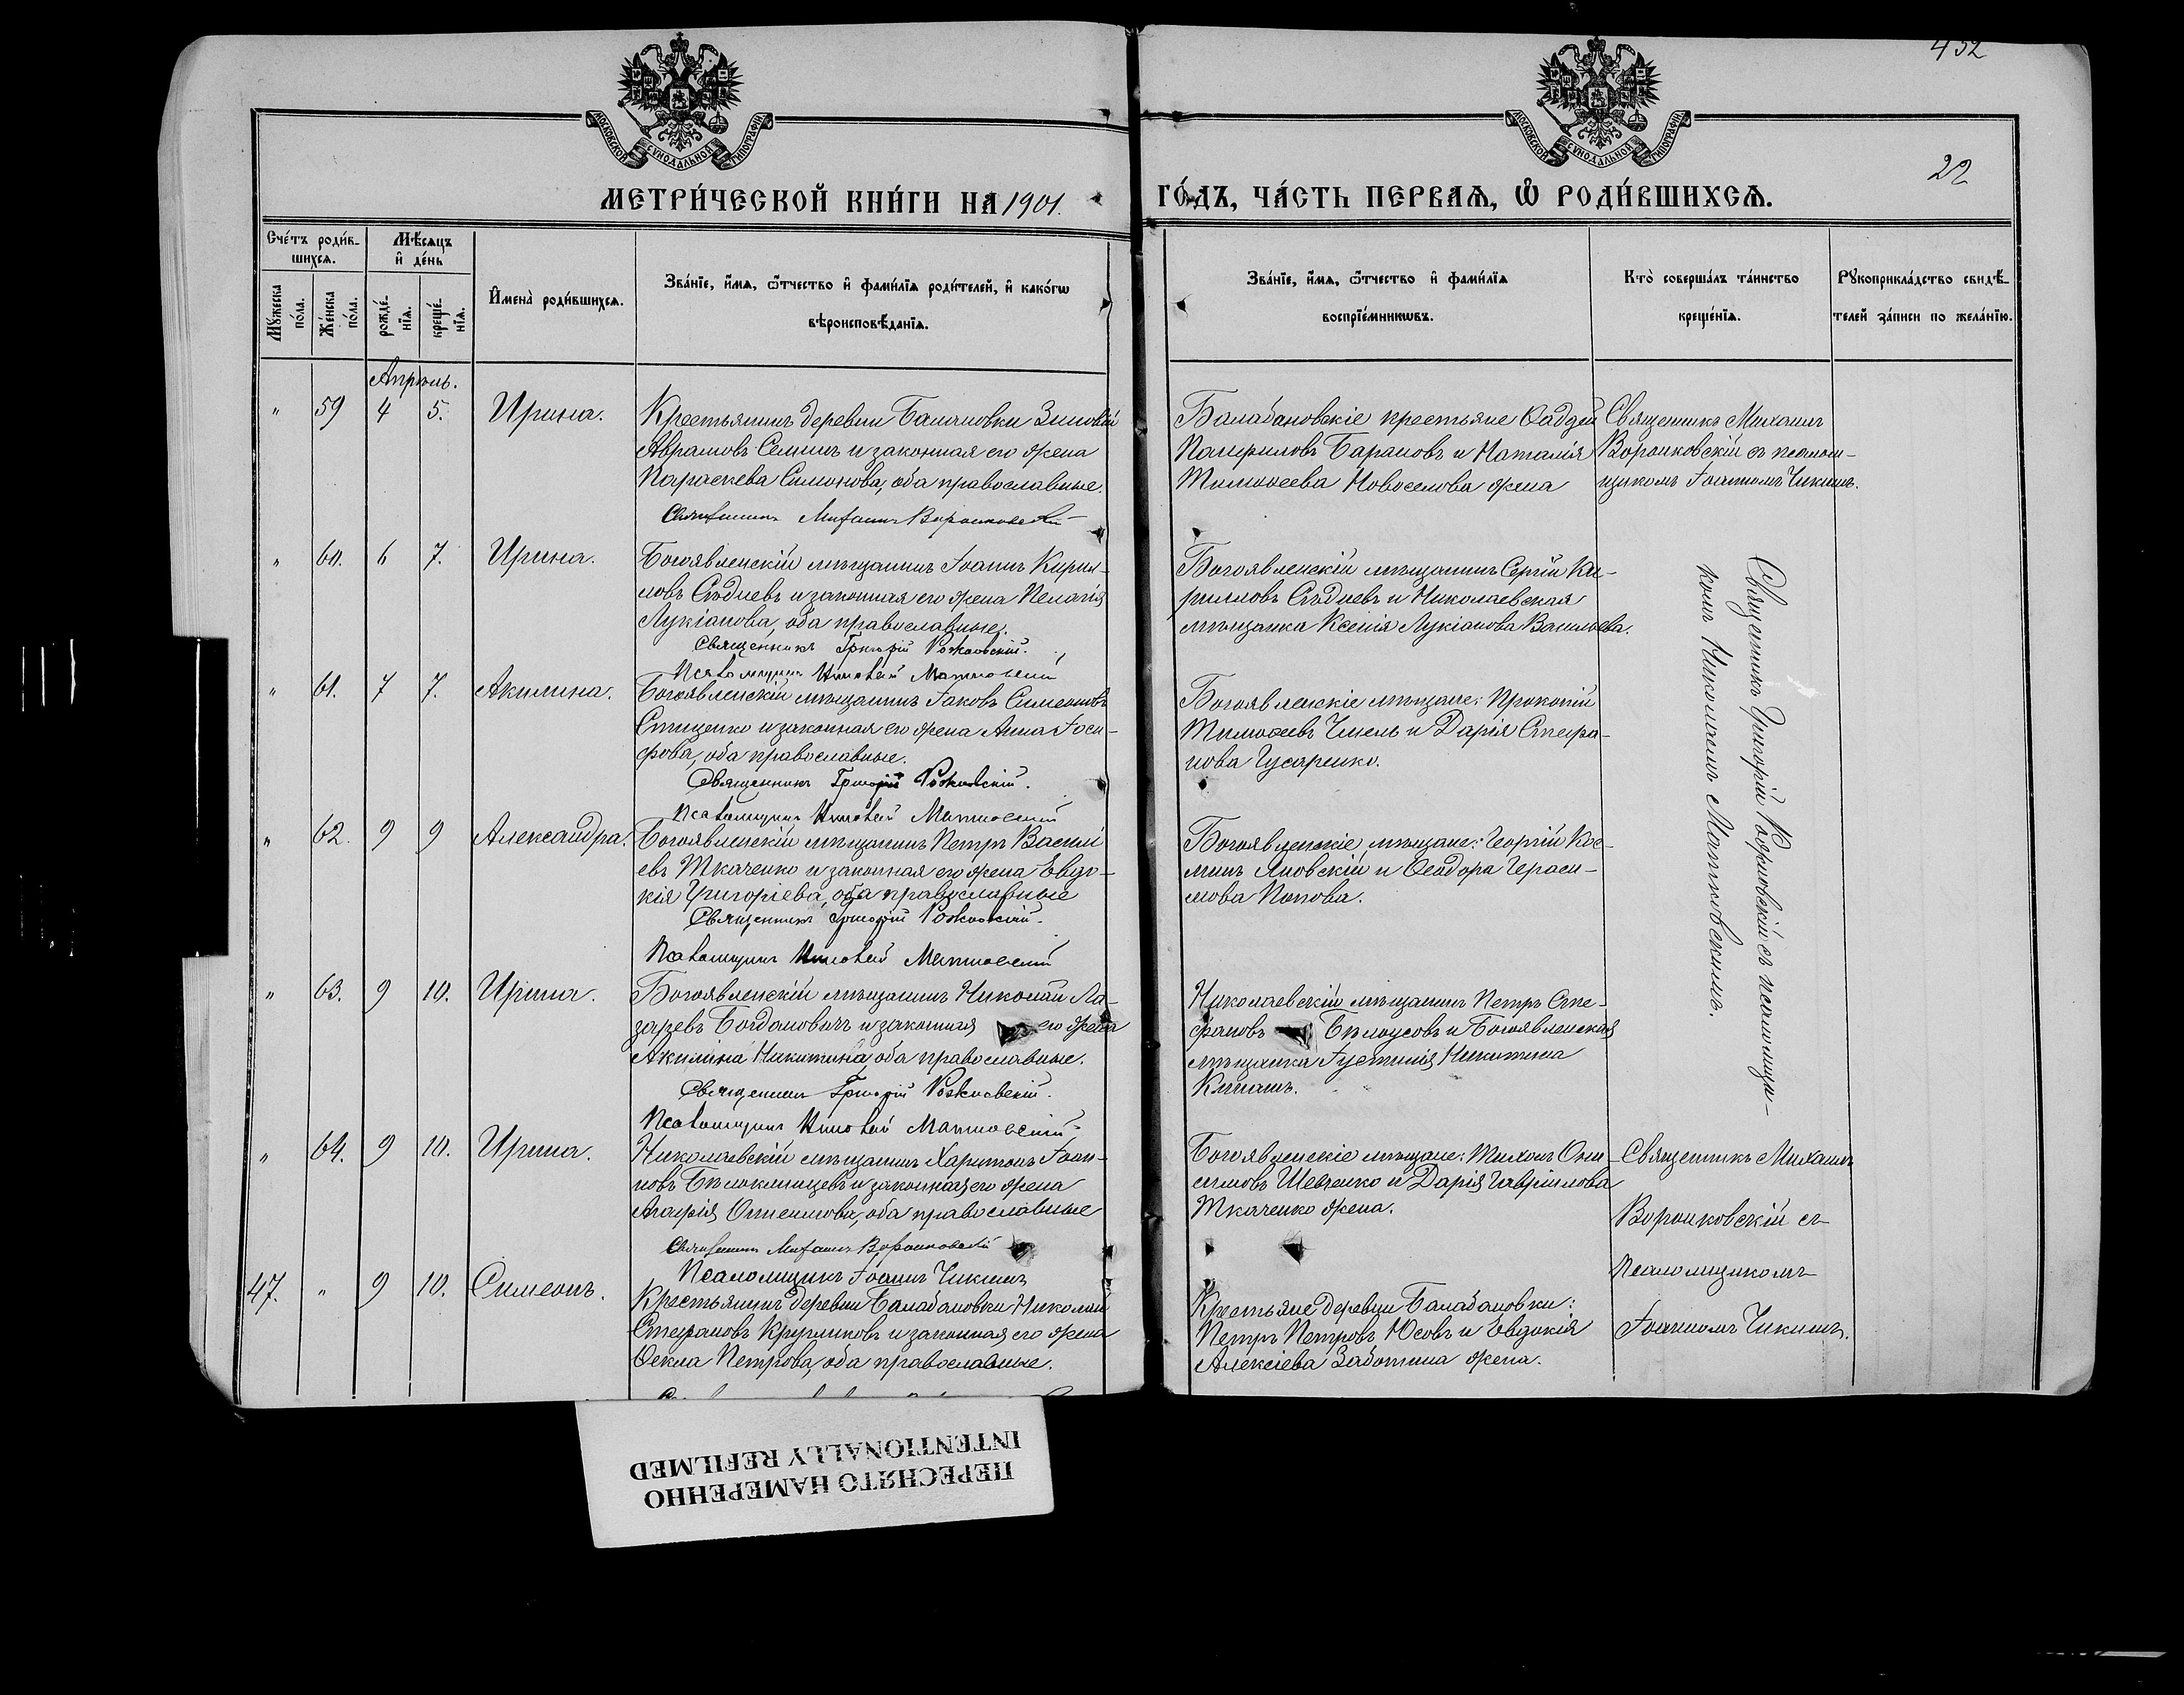 432
22
МОСКОВСКОЙ СѴНОДАЛЬНОЙ ТИПОГРАФІИ
МОСКОВСКОЙ СѴНОДАЛЬНОЙ ТИПОГРАФІИ
МЕТРИ́ЧЕСКОЙ КНИ́ГИ НА 1901.
ГО́ДЪ, ЧА́СТЬ ПЕРВАѦ, Ѡ РОДИ́ВШИХСѦ.
Сче́тъ роди́в-
шихсѧ.
Му́жеска по́ла.
Же́нска по́ла.
Мѣ́сѧцъ и҆ де́нь
рожде́нїѧ.
креще́нїѧ.
И҆мена̀ роди́вшихсѧ.
Зва́нїе, и҆́мѧ, ѻ҆́тчество и҆ фами́лїѧ роди́телей, и҆ како́гѡ
вѣроисповѣ́данїѧ.
Зва́нїе, и҆́мѧ, ѻ҆́тчество и҆ фами́лїѧ
воспрїе́мникѡвъ.
Кто̀ соверша́лъ та́инство
креще́нїѧ.
Рꙋкоприкла́дство свидѣ́-
телей за́писи по жела́нїю.
Апрѣль.
" 59 4 5. Ирина.
Крестьянинъ деревни Баловки Зиновій
Аврамовъ Семинъ и законная его жена
Параскева Симонова, оба православные.
Священникъ Михаилъ Воронковскій
Балабановскіе крестьяне Фаддей
Панфиловъ Барановъ и Наталія
Тимофеева Новоселова жена
Священникъ Михаилъ
Воронковскій съ псаломщ-
щикомъ Іоанномъ Чикинъ.
" 60. 6 7. Ирина.
Богоявленскій мѣщанинъ Іоаннъ Кирил-
ловъ Сѣдневъ и законная его жена Пелагія
Лукіанова, оба православные.
Священникъ Григорій
Псаломщикъ Николай
Богоявленскій мѣщанинъ Сергій Ки-
рилловъ Сѣдневъ и Николаевская
мѣщанка Ксенія Лукіанова Васильева.
" 61. 7 7. Акилина.
Богоявленскій мѣщанинъ Іаковъ Симеоновъ
Стищенко и законная его жена Анна Іоси-
фова, оба православные.
Священникъ Григорій
Псаломщикъ Николай
Богоявленскіе мѣщане: Прокопій
Тимофеевъ Чмель и Дарія Стефа-
нова Гусаренко.
" 62. 9 9 Александра.
Богоявленскій мѣщанинъ Петръ Василі-
евъ Ткаченко и законная его жена Евдо-
кія Григоріева, оба православные
Священникъ Григорій
Псаломщикъ Николай
Богоявленскіе мѣщане: Георгій Кос-
минъ Яновскій и Феодора Гераси-
мова Попова.
" 63. 9 10. Ирина.
Богоявленскій мѣщанинъ Николай Ла-
заревъ Богдановичъ и законная его жена
Акилина Никитина, оба православные.
Священникъ Григорій
Псаломщикъ Николай
Николаевскій мѣщанинъ Петръ Сте-
фановъ Бѣлоусовъ и Богоявленская
мѣщанка Іустинія Никитина
Священникъ Григорій съ псаломщи-
комъ Николаемъ
" 64. 9 10. Ирина.
Николаевскій мѣщанинъ Харитонъ Іоан-
новъ Бѣлоклинцевъ и законная его жена
Агафія, оба православные
Священникъ Михаилъ Воронковскій
Псаломщикъ Іоаннъ Чикинъ
Богоявленскіе мѣщане: Тихонъ Они-
симовъ Шевченко и Дарія Гавріилова
Ткаченко жена.
Священникъ Михаилъ
Воронковскій съ
Псаломщикомъ
Іоанномъ Чикинъ.
47. " 9 10. Симеонъ.
Крестьянинъ деревни Балабановки Николай
Стефановъ Кругликовъ и законная его жена
Фекла Петрова, оба православные.
Крестьяне деревни Балабановки:
Петръ Петровъ Юсовъ и Евдокія
Алексіева Заботина жена.
ПЕРЕСНЯТО НАМЕРЕННО
INTENTIONALLY REFILMED